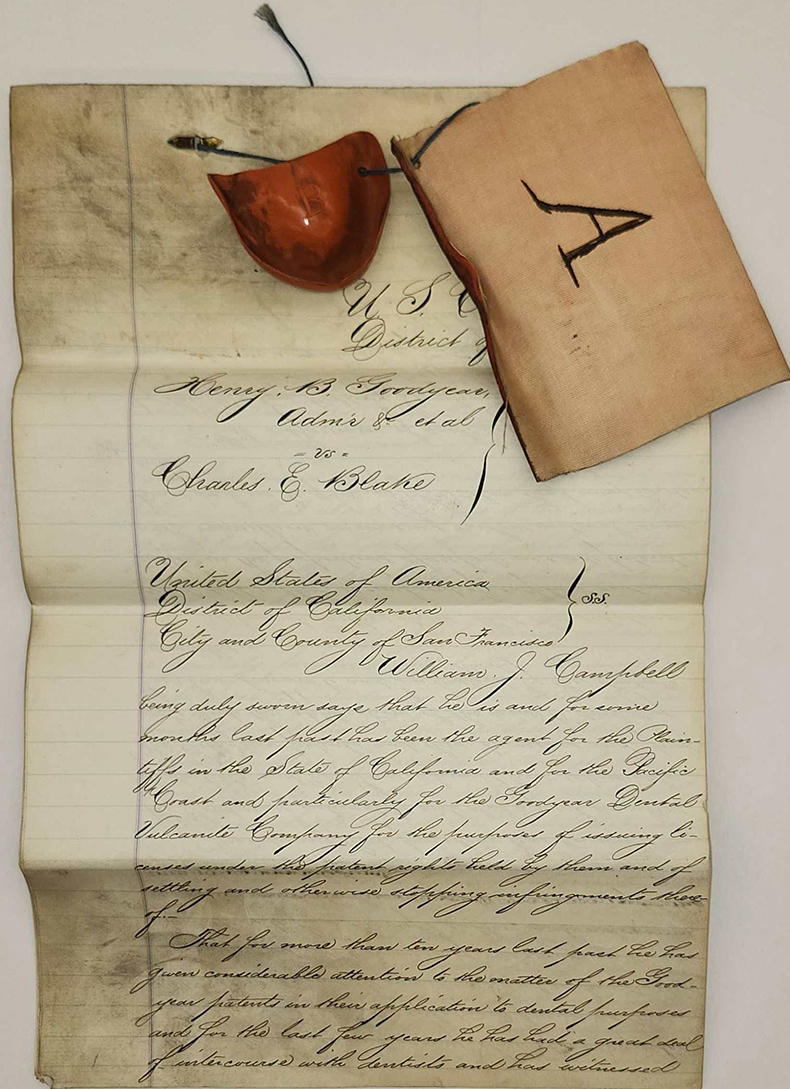 A
U. S. C
District of
Henry. B. Goodyear,
Admr & et al
= vs =
Charles. E. Blake
United States of America
District of California } S.S.
City and County of San Francisco
William. J. Campbell
being duly sworn says that he is and for some
months last past has been the agent for the Plain-
tiffs in the State of California and for the Pacific
Coast and particularly for the Goodyear Dental
Vulcanite Company for the purposes of issuing li-
censes under the patent rights held by them and of
settling and otherwise stopping infringments there-
of.-
That for more than ten years last past he has
given considerable attention to the matter of the Good-
year patents in their application to dental purposes
and for the last few years he has had a great deal
of intercourse with dentists and has witnessed